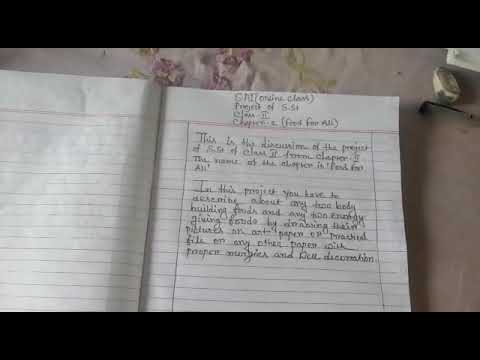 SAI (online class)
Project of S.St
Class-II
Chapter-2 (Food for All)
This is the discussion of the project
of S.St of class II from chapter-II
The name of the chapter is 'Food for
All'
In this project you have to
describe about any two body
building foods and any two energy
giving foods by drawing their
pictures on art paper or
file or any other paper with
proper margins and Well decoration.